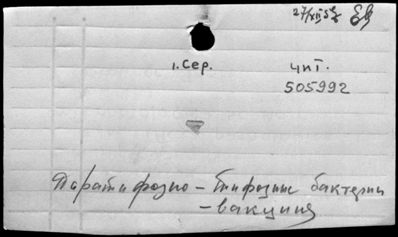 27/XII 52
1. Сер. чит.
505992
Паратифозно – тифозные бактерии
– вакцина